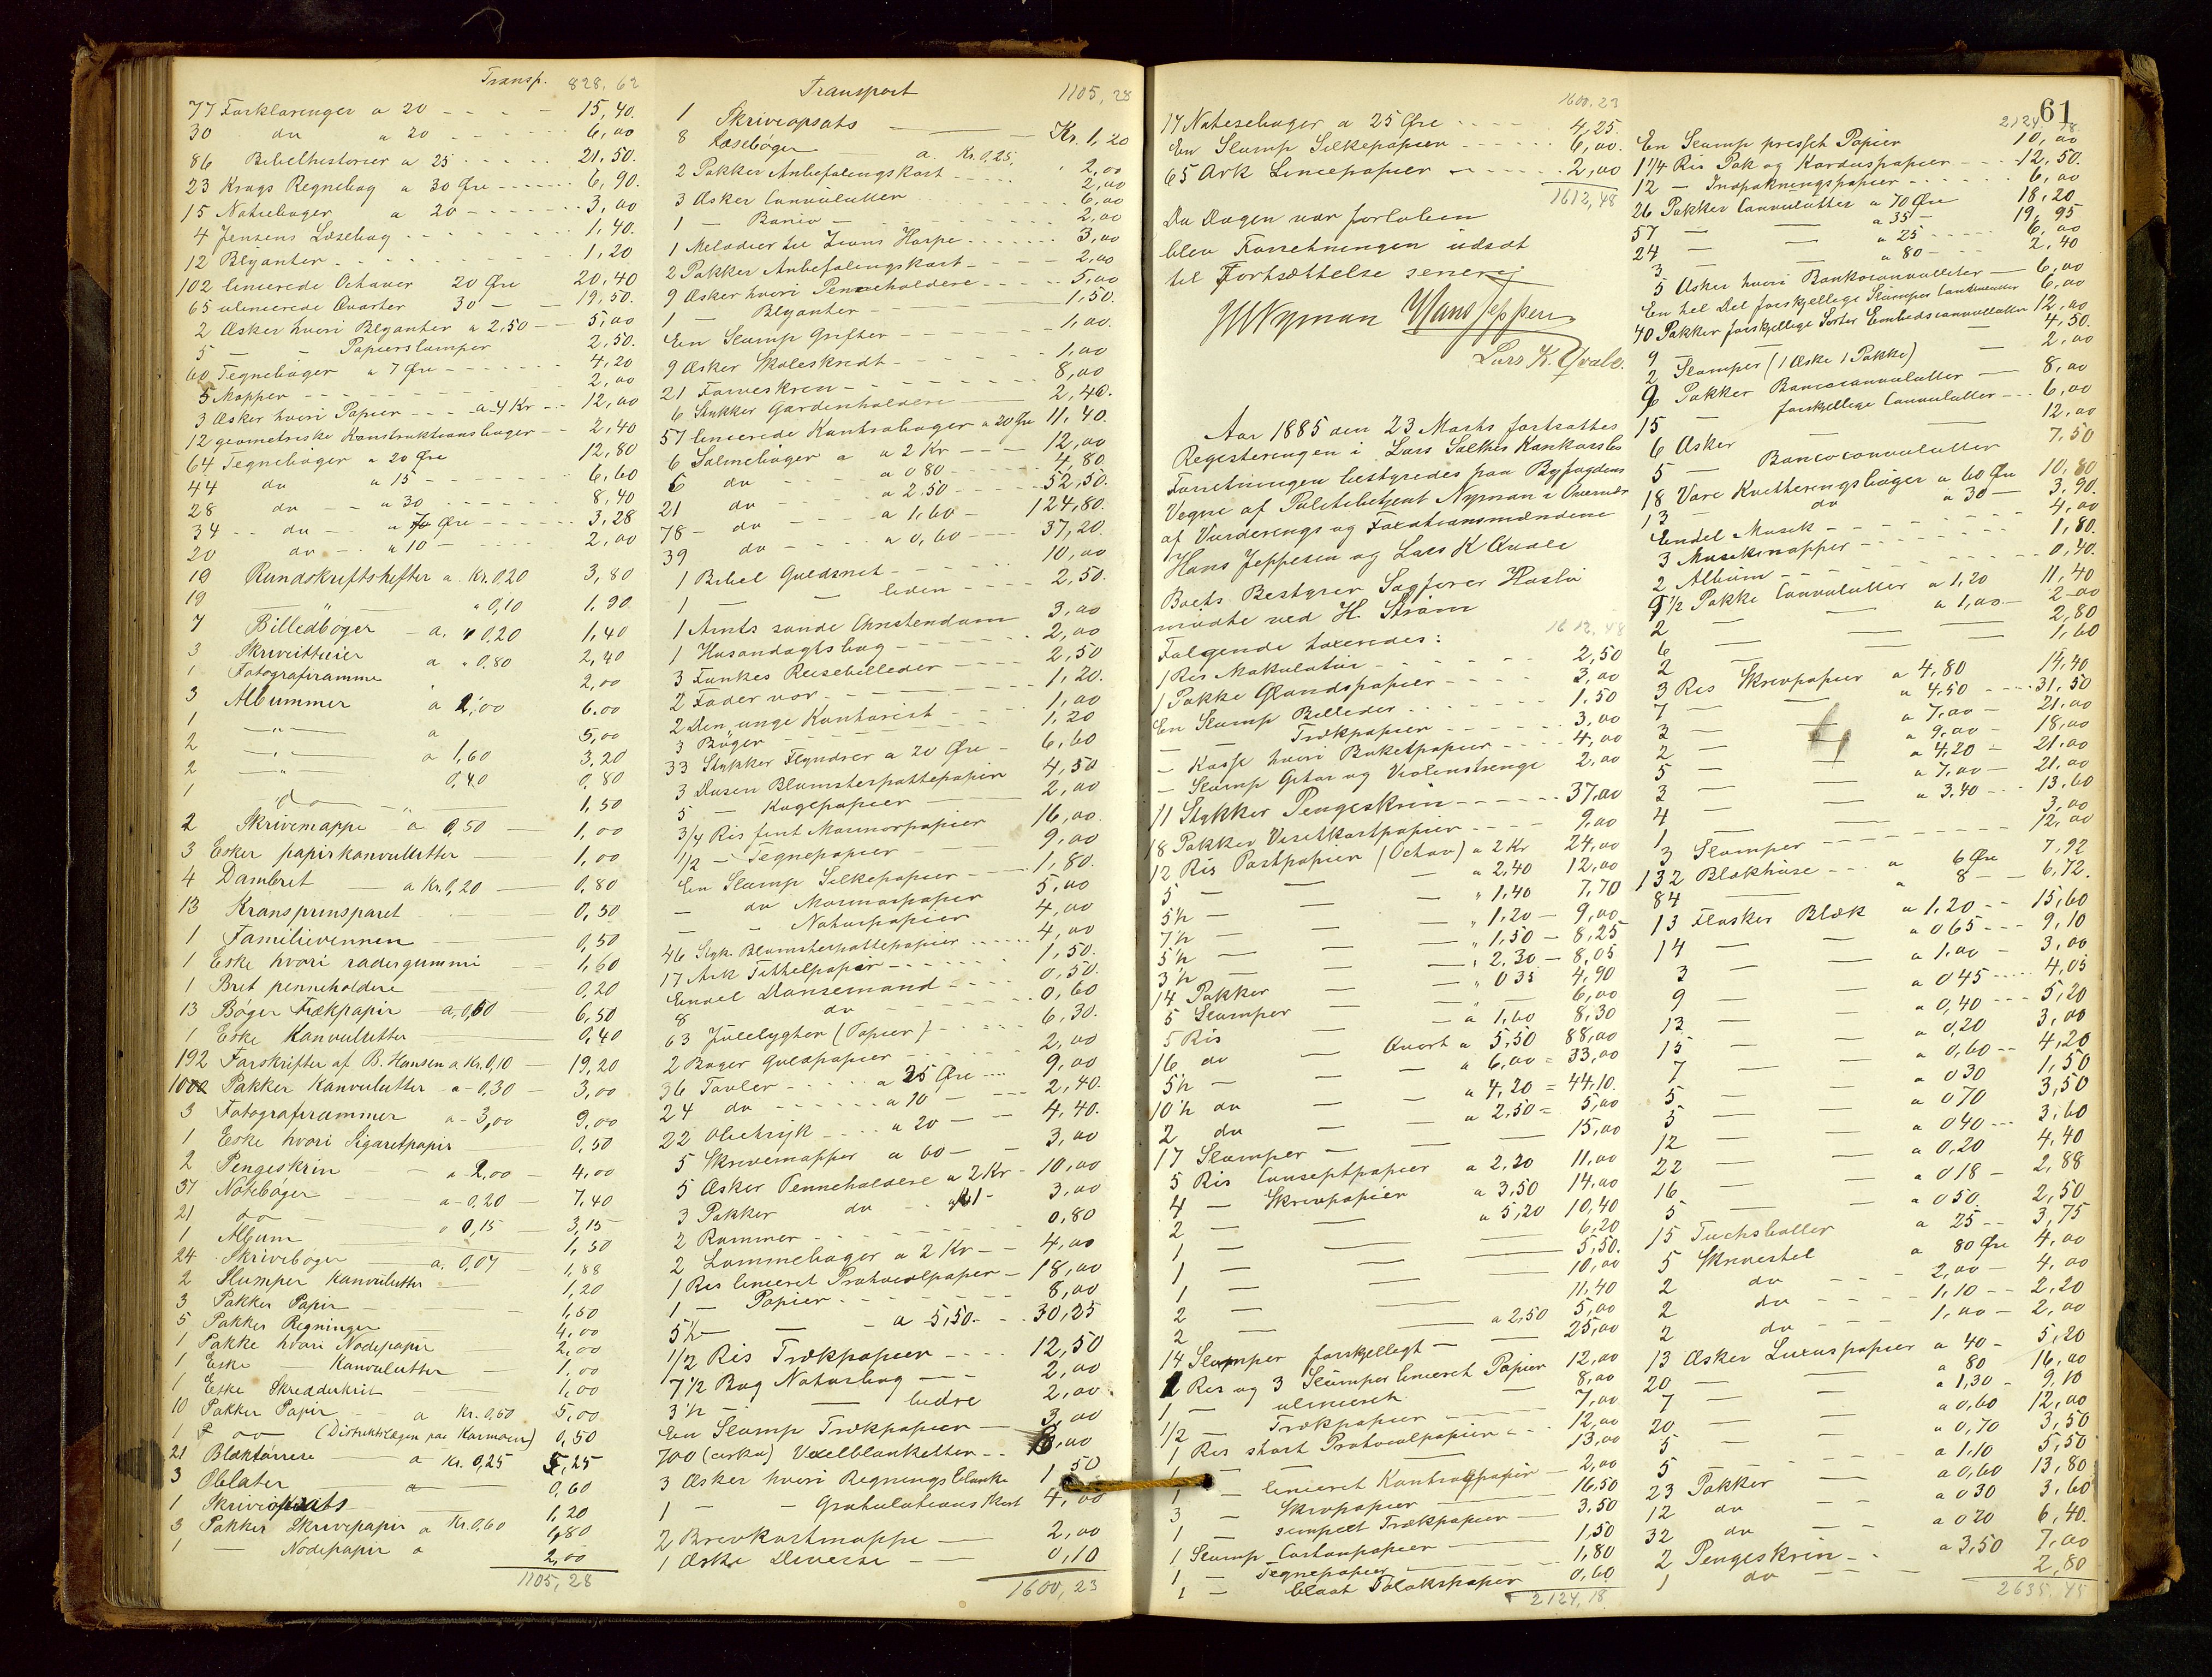 Transp. 828,62
77 Forklaringer a 20 - - - - 15,40.
30 do a 20 - - - - 6,00
86 Bibelhistorier a 25 - - - - 21,50.
23 Krogs Regnebog a 30 Øre - - - - 6,90.
15 Notiebøger a 20 - - - - 3,00
4 Jensens Læsebog - - - - 1,40.
12 Blyanter - - - - 1,20
102 linierede Octaver 20 Øre 20,40
65 ulinierede Qvarter 30 - - 19,50.
2 Æsker hvori Blyanter a 2,50 - - 5,00
5 - - Papirslumper 2,50.
60 Tegnebøger a 7 Øre - - - - 4,20
5 Mapper - - - - 2,00
3 Æsker hvori Papier - - - a 4 Kr - - 12,00
12 geometriske Konstruktionsbøger - - 2,40
64 Tegnebøger a 20 Øre 12,80
44 do a 15 - - - - 6,60
28 do - - a 30 - - - - 8,40
34 - - do - a Øre - - - - 3,28
20 do - - a 10 - - - - 2,00
19 Rundskriftshefter a Kr. 0,20 3,80
19 — " — " 0,10 1,90
7 Billedbøger - a. " 0,20 1,40
3 Skriveittuier a " 0,80 2,40
1 Fotografiramme " 2,00
3 Albummer a 2,00 6.00
1 —"— a 5,00
2 —"— a 1,60 3,20
2 —"— 0,40 0,80
1 do — " — 1,50
2 Skrivemappe - a 0,50 — 1,00
3 Esker papirkonvulutter — 1,00
4 Dambret — a Kr. 0,20 — 0,80
13 Kransprensparet — 0,50
1 Familievennen — 0,50
1 Eske hvori radergummi — 1,60
1 Bret penneholdere — 0,20
13 Bøger Trækpapir — a, 0,50 — 6,50
1 Eske Kanvulutter — 0,40
192 Forskrifter af B. Hansen a Kr. 0,10 — 19,20
10 Pakker Kanvulutter — a - 0,30 — 3,00
3 Fotografirammer a - 3,00 9,00
1 Eske hvori Sigaretpapir — 0,50
2 Pengeskrin — a - 2,00 — 4,00
37 Notebøger — a - 0,20 — 7,40
21 do — a 0,15 — 3,15
1 Album — 1,50
24 Skrivebøger — a. 0,07 — 1,88
2 Slumper Kanvulutter — 1,20
3 Pakker Papir — 1,50
5 Pakker Regninger 4,00
1 Pakke hvori Nodepapir 2,00
1 Eske — Kanvulutter — 1,00
1 Eske Skredderkrit — 1,00
10 Pakker Papir — a Kr. 0,50 5,00
1 P do (Distriktslægen paa Karmøen) 0,50
21 Blæktørrere — a Kr. 0,25 5,25
3 Oblater — a — 0,60
1 Skriveopsats — 1,20
3 Pakker Skrivepapir a Kr. 0,60 1,80
1 — Nodepapir a 2,00
1105,28
Transport 1105,28
1 Skriveopsats — Kr. 1,20
8 Læsebøger — a. Kr. 0,25. 2,00
2 Pakker Anbefalingskort - - - - 2,00
3 Æsker Convulutter - - - - 6,00
1 — Banco — - - - 2,00
1 Melodier til Zions Harpe - - - - 3,00
2 Pakker Anbefalingskort - - - - 2,00
9 Æsker hvori Penneholdere - - - - 5,00
1 — Blyanter - - 1,50.
En Slump Grifter - - - - 1,00.
9 Æsker Skolekridt - - - - 1,00
21 Farveskrin - - - - 8,00
6 Stykker Gardinholdere - - 2,40.
57 linierede Kontrabøger a 20 Øre 11,40.
6 Salmebøger a a 2 Kr - - - 12,00
6 do a 0 80 - - - 4,80.
21 do a 2,50 - - - 52,50.
78 - do - - - a 1,60 - - 124,80.
39 do - - - a 0,60 - - - 37,20.
1 Bibel Guldsnit - - - - 10,00
1 — — uden - - 2,50.
1 Arnts sande Christendom 3,00
1 Husandagtsbog - - - - 2,00
3 Funkes Reisebilleder - - - - 2,50
2 Fader vor - - - - 1,20.
2 Den unge Kontorist - - 1,00
3 Bøger - - - - 1,20
33 Stykker Flyndrer a 20 Øre - 6,60
3 Dusin Blomsterpottepapier 4,50
5 — Kagepapier — 2,00
3/4 Ris fint Marmorpapier 16,00.
1/2 — Tegnepapier — 9,00
En Slump Silkepapier - - - 1,80.
— do Marmorpapier 5,00
— - Naturpapier 4,00
46 Styk. Blomsterpottepapier - - - 4,00
17 Ark Tittelpapir - - - - 1,50.
Endel - - - - 0,50.
8 do - - - - 0,60
63 Julelygter (Papier) - - - - 6,30.
2 Bøger Guldpapier - - - - 2,00
36 Tavler - - - - a 25 Øre - - - 9,00
24 do - - - - a 10 - - - 2,40.
22 - - - a 20 - - 4,40.
5 Skrivemapper a 60 - - 3,00
5 Æsker Penneholdere a 2 Kr - 10,00
3 Pakker do - - a 1 - 3,00
2 Rammer - - - - 0,80
2 Lommebøger a 2 Kr - - 4,00
1 Ris linieret Protocolpapir - 18,00
1 — Papier - - - - 8,00
5 1/2 — — - a 5,50 - - - 30,25
1/2 Ris Trækpapier - - - - 12,50
7 1/2 Bog Naturbog - - - 2,00
3 1/2 — - — bedre 2,00.
En Slump Trækpapier — 3,00
700 (cirka) Vexelblanketter - - ,00
3 Æsker hvori Regningsblanke 1,50
1 — - Gratulationskort 4,00
2 Brevkortmappe — 2,00
1 Æske Diverse — 0,10
1600,23
1600.23
17 Notesebøger a 25 Øre - - - - 4,25.
En Slump Silkepapier - - - - 6,00.
65 Ark Liniepapier - - - - 2,00
1612,48
Da Dagen var forløben
blev Forretningen udsat
til Fortsættelse senere
JWNyman Hans Jeppesen
Lars K. Qvale.
Aar 1885 den 23 Marts fortsattes
Registeringen i Lars Sælthes Konkursbo
Forretningen bestyredes paa Byfogdens
Vegne af Politibetjent Nyman i Overvær
af Vurderings og Taxationsmændene
Hans Jeppesen og Lars K Qvale
Boets Bestyrer Sagfører Hasle
mødte ved H. Strøm
Følgende taxeredes: 1612,48
1 Ris Makulatur - - - - 2,50
1 Pakke Glandspapier - - - - 3,00
En Slump Billeder - - - - 1,50
— — Trækpapier - - - - 3,00
— Kasse hvori Buketpapier - - - - 4,00
— Slump Gitar og Violinstrenge 2,00
11 Stykker Pengeskrin - - - - 37,00
18 Pakker Visitkortpapier - - - - 9,00
12 Ris Postpapier (Octav) a 2 Kr 24,00
5 — — — a 2,40 12,00
5 1/2 — — — " 1,40 7,70
7 1/2 — — — " 1,20 - 9,00
5 1/2 — — — " 1,50 - 8,25
3 1/2 — — — " 2,30 - 8,05
14 Pakker — — " 0 35 4,90
5 Slumper — — " — 6,00
5 Ris — a 1,60 8,30
16 do — Qvart a 5,50 88,00
5 1/2 — — — a 6,00 = 33,00
10 1/2 do — — a 4,20 = 44,10.
2 do — — a 2,50 = 5,00
17 Slumper — — 15,00
5 Ris Conseptpapier a 2,20 11,00
4 — Skrivpapier a 3,50 14,00
2 — — a 5,20 10,40
1 — — 6,20
1 — — 5,50.
1 — — 10,00
2 — — 11,40
2 — — a 2,50 5,00
14 Slumper forskjelligt — 25,00
1 Ris og 3 Slumper linieret Papier 12,00
1 — ulinieret — 8,00
1/2 — Trækpapier — 7,00
1 Ris stort Protocolpapier - - 12,00
1 — — — 13,00
1 — linieret Kontrapapir — 2,00
3 — Skrivpapier — 16,50
1 — simpelt Trækpapier — 3,50
1 Slump Cartonpapier — 1,50
1 — Tegnepapier — 1,80
1 — blaat Tobakspapir 0,60
2124,18
61
2124,18.
En Slump presset Papier 10,00
1 1/4 Ris Pak og Karduspapier - - - 12,50.
12 — Indpakningspapier - - - - 6,00
26 Pakker Convulutter a 70 Øre 18,20
57 — — a 35 — 19,95
24 — — a 25 - - - - 6,00
3 — — a 80 — - - 2,40
5 Æsker hvori Bankoconvulutter — 6,00
En hel Del forskjellige Slumper Convulutter 6,00
40 Pakker forskjellige Sorter Embedsconvulutter 12,00
9 — — 4,50.
2 Slumper (1 Æske 1 Pakke) 2,00
9 Pakker Bancoconvulutter — 8,00
15 — forskjellige Convulutter - - - 6,00
6 Æsker — — 12,00
5 — Bancoconvulutter 7,50
18 Vare Kvitteringsbøger a 60 Øre 10,80
13 — do a 30 — 3,90.
Endel Musik - - - - 4,00
3 Musikmapper - - - - 1,80.
2 Album - - - - 0,40.
9 1/2 Pakke Convulutter a 1,20 11,40
2 — — a 1,00 — 2,00
6 — — 2,80
2 — — 1,60
3 Ris Skrivpapier a 4,80 14,40
7 — — a 4,50 - - - 31,50
3 — — a 7,00 — 21,00
2 — — a 9,00 — 18,00
5 — — a 4,20 — 21,00
3 — — a 7,00 — 21,00
4 — — a 3,40 - - - 13,60
1 — — 3,00
3 Slumper - - - - 12,00
132 Blækhuse - - a 6 Øre 7,92
84 — a 8 — - 6,72.
13 Flasker Blæk a 1,20 - - 15,60
14 — — a 0 65 - - - 9,10
3 — — a 1,00 — 3,00
9 — — a 0 45 - - - - 4,05
13 — — a 0,40 - - - 5,20
15 — — a 0,20 3,00
7 — — a 0,60 - - 4,20
5 — — a 0 30 1,50
5 — — a 0 70 3,50
12 — — a 0 40 - - - 3,60
22 — — a 0,20 4,40
16 — — a 0 18 - 2,88
5 — — a 0 50 2,50
15 Tuchsboller a 25 - - 3,75
5 Skrivestel a 80 Øre 4,00
2 do - - - 2,00 — 4,00
2 do - - - 1,10 - - 2,20
2 do - - - 1,00 — 2,00
13 Æsker Luxuspapier a 40 - 5,20
20 — — a 80 16,00
7 — — a 1,30 - 9,10
20 — — a 0,60 12,00
5 — — a 0,70 3,50
5 — — a 1,10 5,50
23 Pakker — a 0,60 13,80
12 do — — a 0 30 3,60
32 do — — a 0 20 6,40.
2 Pengeskrin - - a 3,50 7,00
1 do - - - 2,80
2635,45